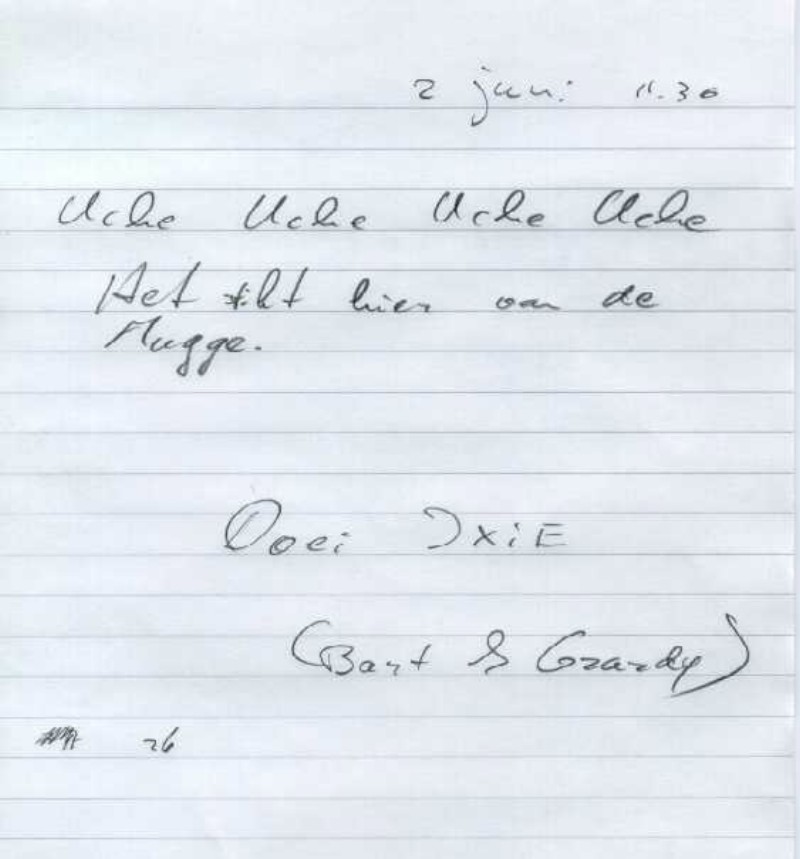 2 juni 11.30
Uche Uche Uche Uche
Het stilt hier van de
Mugge.
Doei IXIE
(Bart & Grardy)
26